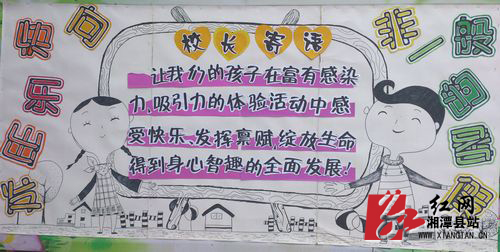 校长寄语
让我们的孩子在富有感染
力、吸引力的体验活动中感
受快乐、发挥禀赋，绽放生命
得到身心智趣的全面发展！
非一般
红网
湘潭县站